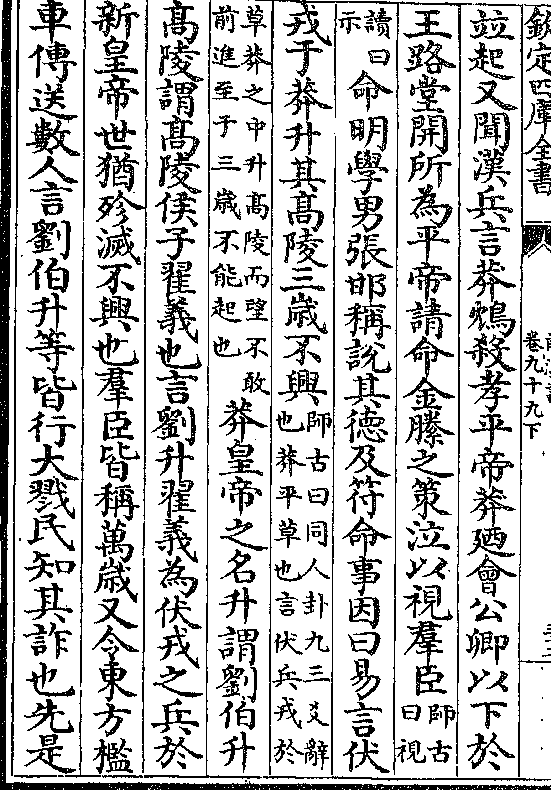 欽定四庫全書
卷九十九下
竝起又聞漢兵言莽鴆殺孝平帝莽廼會公卿以下於
王路堂開所為平帝請命金縢之策泣以視羣臣師古曰視
讀曰示命明學男張邯稱說其德及符命事因曰易言伏
戎于莽升其髙陵三歲不興師古曰同人卦九三爻辭也莽平草也言伏兵戎於
草莽之中升髙陵而望不敢前進至于三歲不能起也莽皇帝之名升謂劉伯升
髙陵謂髙陵侯子翟義也言劉升翟義為伏戎之兵於
新皇帝世猶殄滅不興也羣臣皆稱萬歲又令東方檻
車傳送數人言劉伯升等皆行大戮民知其詐也先是